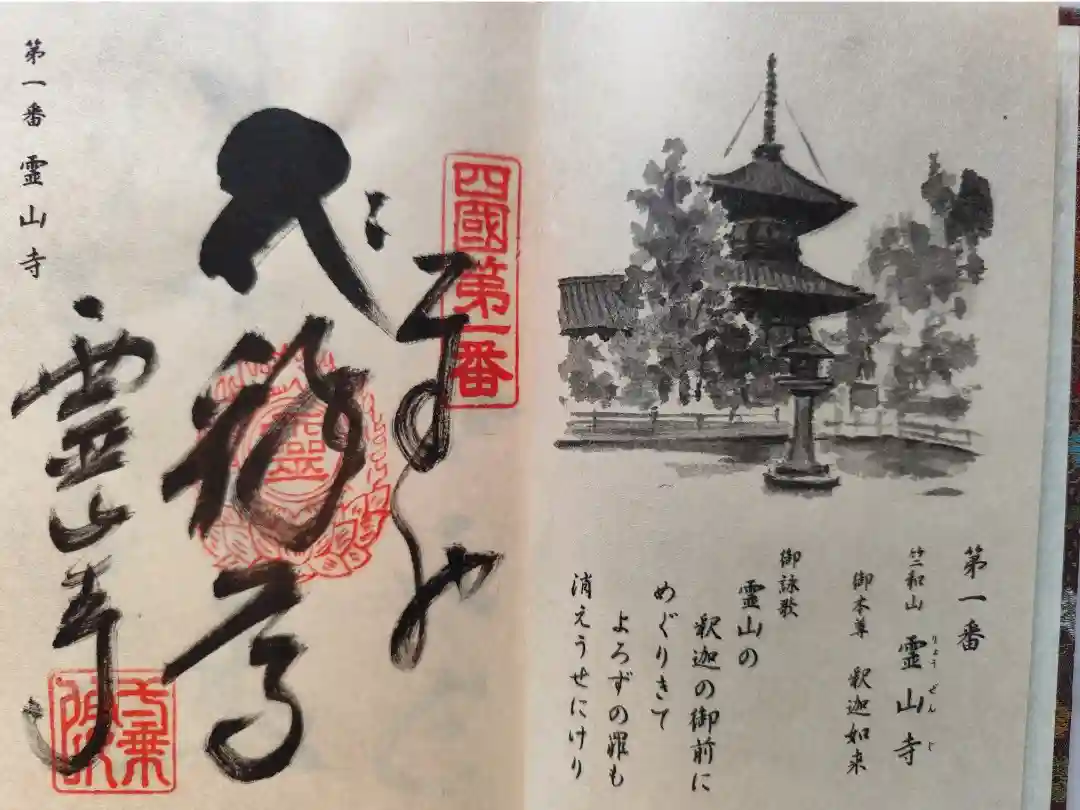 第一番
竺和山 霊山寺
りょうぜんじ
御本尊 釈迦如来
御詠歌
霊山の
釈迦の御前に
めぐりきて
よろずの罪も
消えうせにけり
四國第一番
霊山寺
第一番 霊山寺